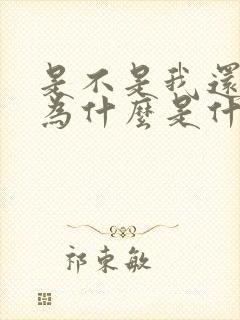 是不是我還
為什麼是什
祁東敏